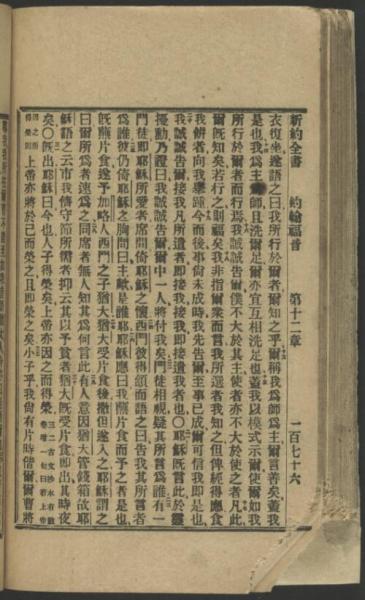 新約全書　約翰福音　第十三章　二百七十六
衣復坐遂語之曰我所行於爾者爾知之乎爾稱我爲師爲主爾言善矣蓋我
是也我爲主爲師且洗爾足爾亦宜互相洗足也蓋我以模式示爾使爾如我
所行於爾者而行焉我誠誠告爾僕不大於其主使者亦不大於使之者凡此
爾既知矣若行之則福矣我非指爾衆而言我所選者我知之但俾經得應食
我餅者向我舉踵今而後事尙未成時我先告爾至事已成爾可信我即是也
我誠誠告爾接我凡所遣者即接我接我即接遣我者也○耶穌既言此於靈
擾動乃證曰我誠誠告爾爾中一人將付我矣門徒相視疑其所言爲誰有一
門徒即耶穌所愛者席間倚耶穌之懷西門彼得頷而語之曰告我其所言者
爲誰彼仍倚耶穌之胸問曰主歟是誰耶穌應曰我蘸片食而予之者是也
既蘸片食遂予加略人西門之子猶大猶大受片食後撒但遂入之耶穌謂之
曰爾所爲者速爲之同席者無人知其爲何言此有人意因猶大管錢箱故耶
穌語之云市我儕守節所需者抑云其以予貧者猶大既受片食即出其時夜
矣○既出耶穌曰今也人子得榮矣上帝亦因之而得榮
得榮則上帝亦將於己而榮之且即榮之矣小子乎我尙有片時偕爾爾曹將